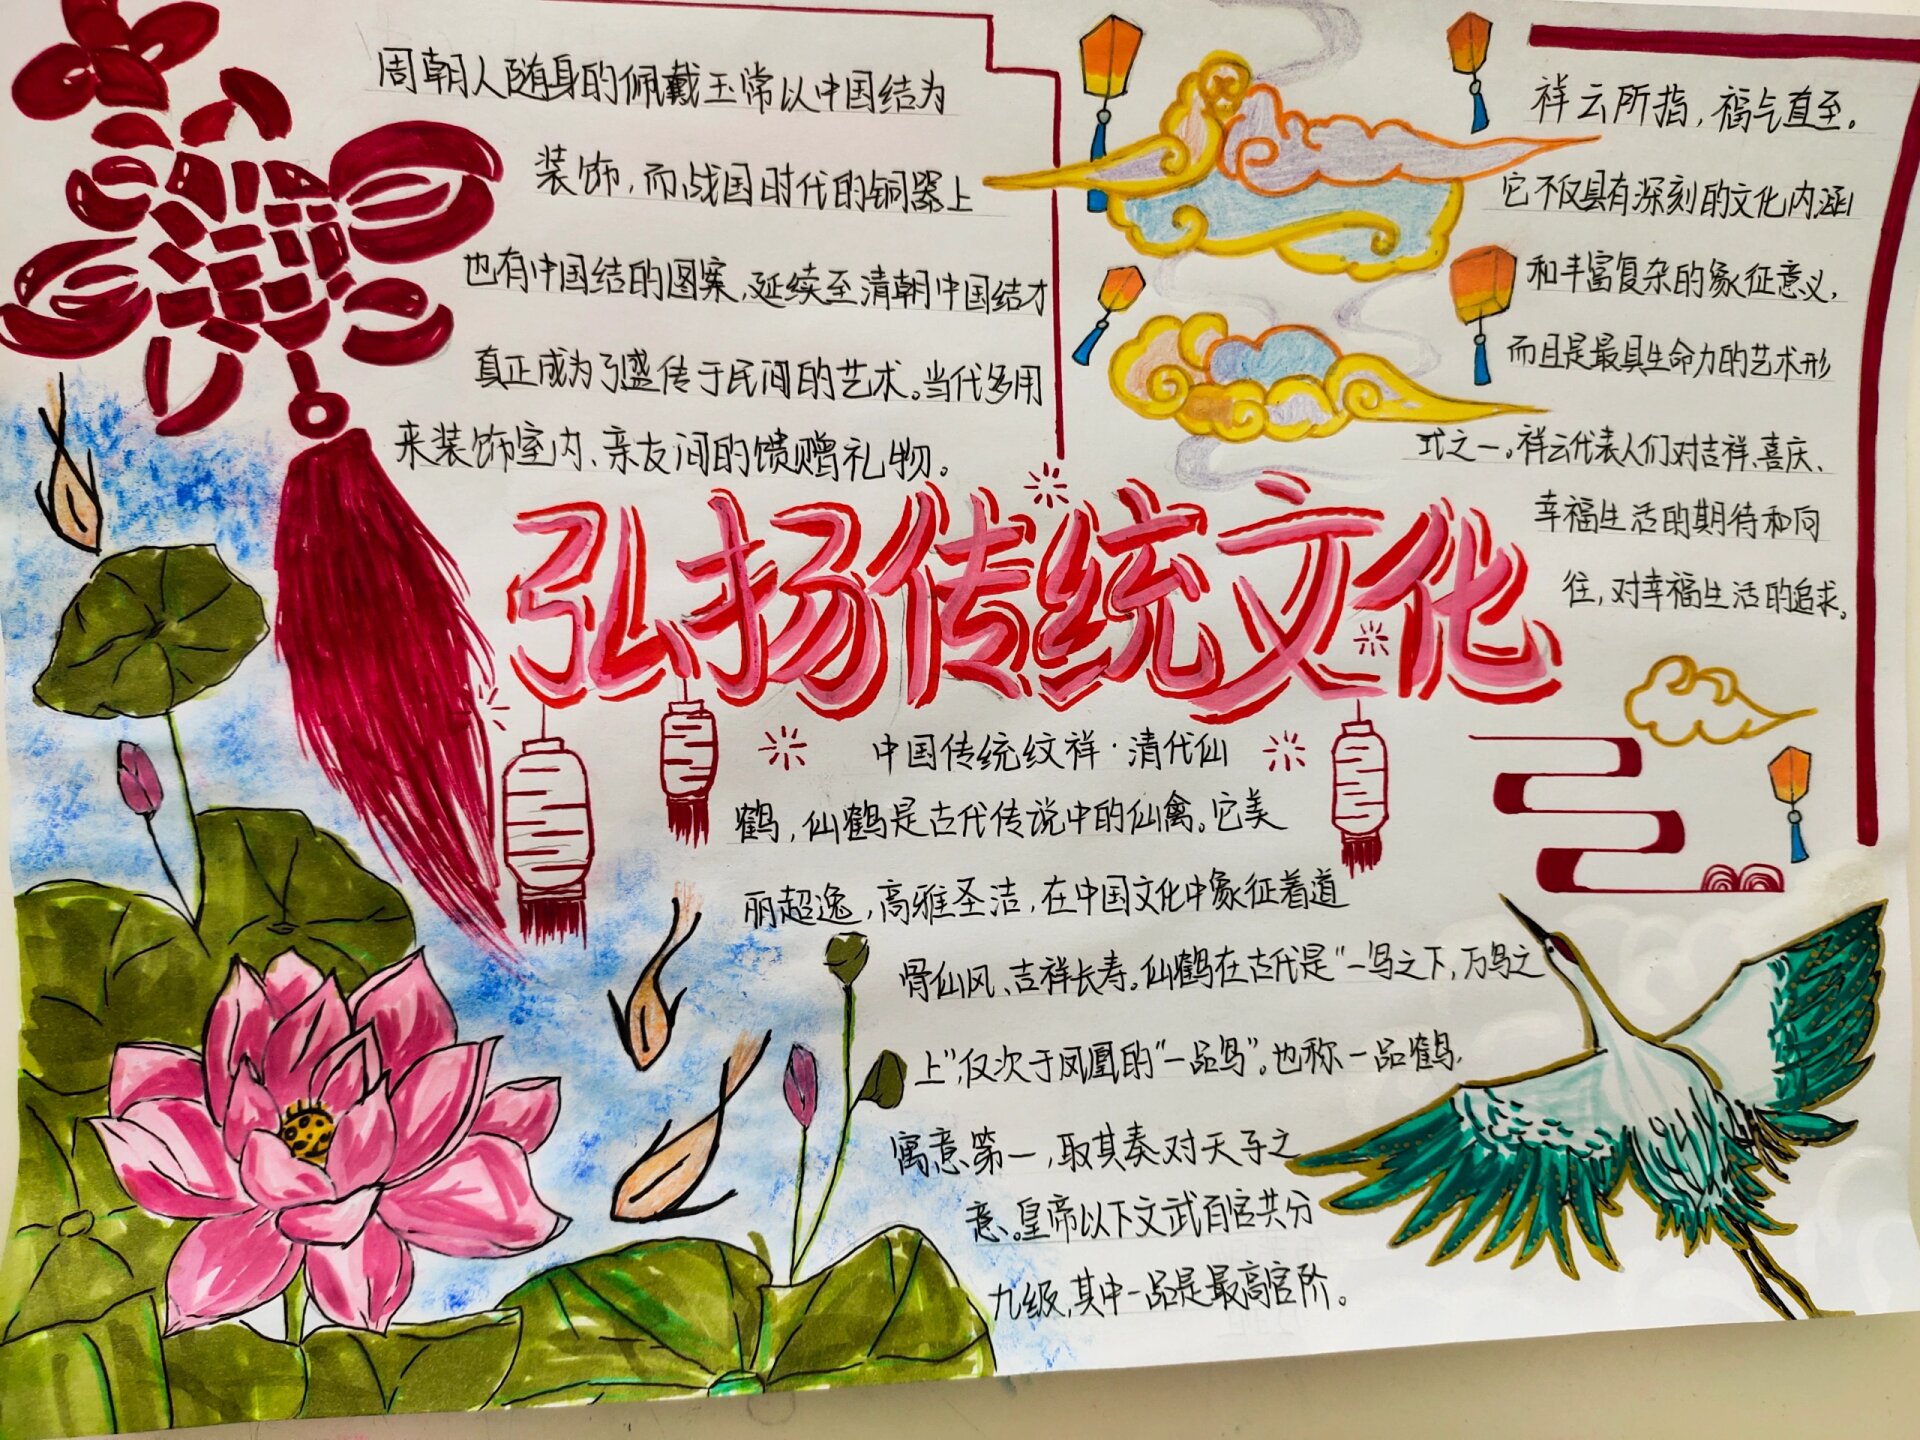 周朝人随身的佩戴玉常以中国结为
装饰,而战国时代的铜器上
也有中国结的图案,延续至清朝中国结才
真正成为弘盛传于民间的艺术。当代多用
来装饰室内、亲友间的馈赠礼物。
祥云所指,福气直至。
它不仅具有深刻的文化内涵
和丰富复杂的象征意义,
而且是最具生命力的艺术形
式之一。祥云代表人们对吉祥、喜庆、
幸福生活的期待和向
往,对幸福生活的追求。
弘扬传统文化
中国传统纹祥·清代仙
鹤,仙鹤是古代传说中的仙禽。它美
丽超逸,高雅圣洁,在中国文化中象征着道
骨仙风、吉祥长寿。仙鹤在古代是“一鸟之下,万鸟之
上”,仅次于凤凰的“一品鸟”。也称一品鹤,
寓意第一,取其奏对天子之
意。皇帝以下文武百官共分
九级,其中一品是最高官阶。